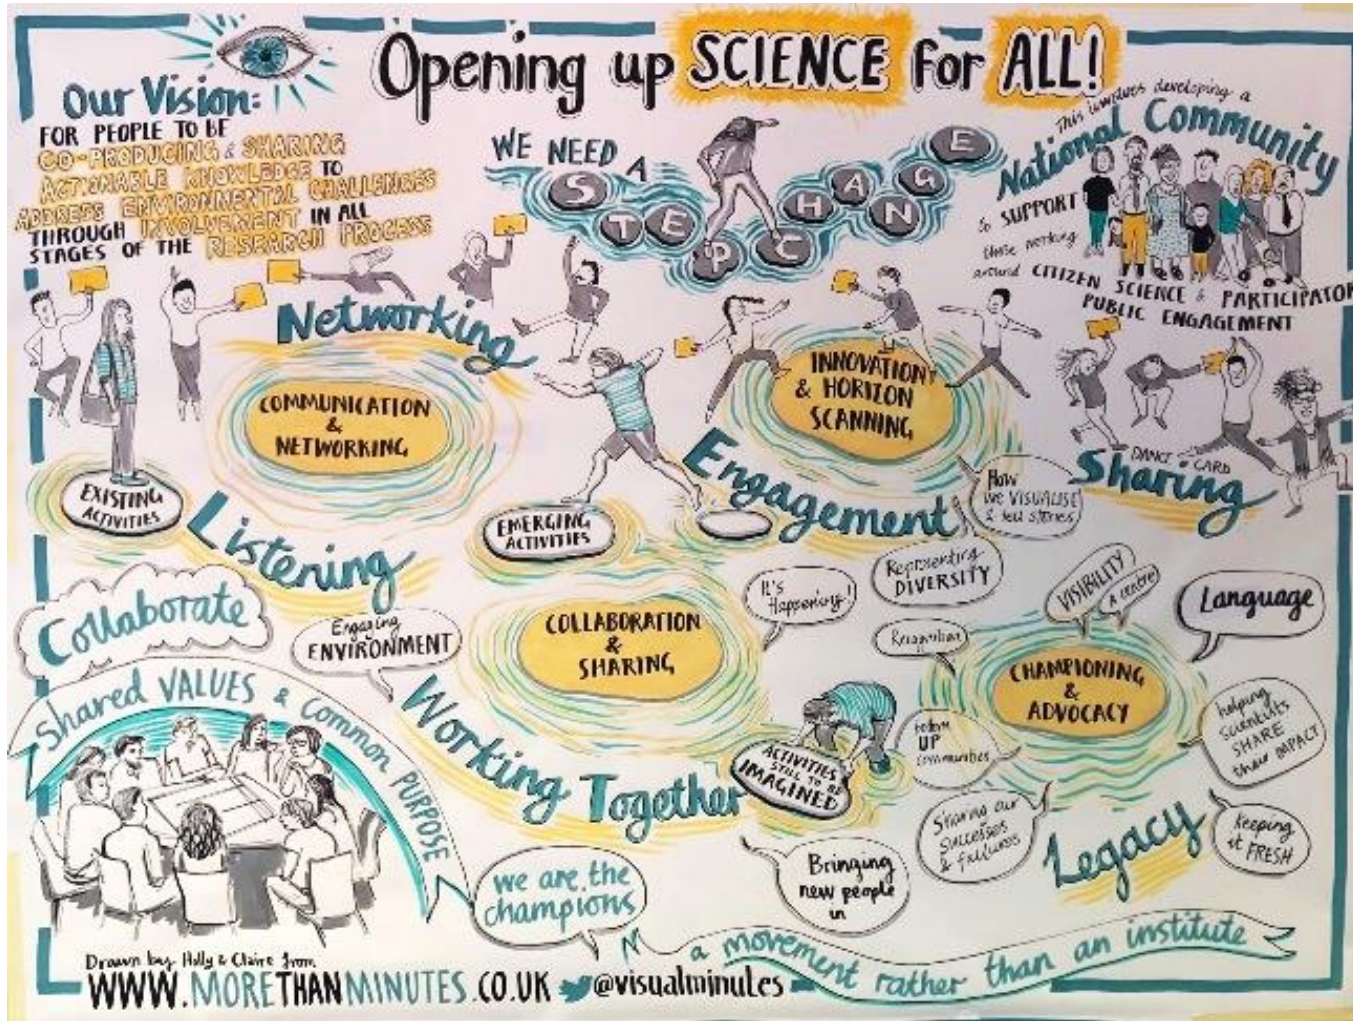 Opening up SCIENCE for ALL!
Our Vision:
FOR PEOPLE TO BE
CO-PRODUCING & SHARING
ACTIONABLE KNOWLEDGE TO
ADDRESS ENVIRONMENTAL CHALLENGES
THROUGH INVOLVEMENT IN ALL
STAGES OF THE RESEARCH PROCESS
WE NEED A
STEP CHANGE
This involves developing a
National Community
to SUPPORT
those working
around CITIZEN SCIENCE & PARTICIPATOR
PUBLIC ENGAGEMENT
Networking
COMMUNICATION
&
NETWORKING
INNOVATION
& HORIZON
SCANNING
EXISTING
ACTIVITIES
Listening
EMERGING
ACTIVITIES
Engagement
How
we VISUALISE
& tell stories
DANCE CARD
Sharing
Collaborate
Engaging
ENVIRONMENT
COLLABORATION
&
SHARING
It's
Happening!
Representing
DIVERSITY
Recognition
VISIBILITY
A centre
Language
CHAMPIONING
&
ADVOCACY
Shared VALUES & Common PURPOSE
Working Together
ACTIVITIES
STILL TO BE
IMAGINED
bottom
UP
communities
helping
scientists
SHARE
their IMPACT
Sharing our
successes
& failures
Legacy
Keeping
it FRESH
we are the
champions
Bringing
new people
in
a movement rather than an institute
Drawn by Holly & Claire from
WWW.MORETHANMINUTES.CO.UK @visualminutes